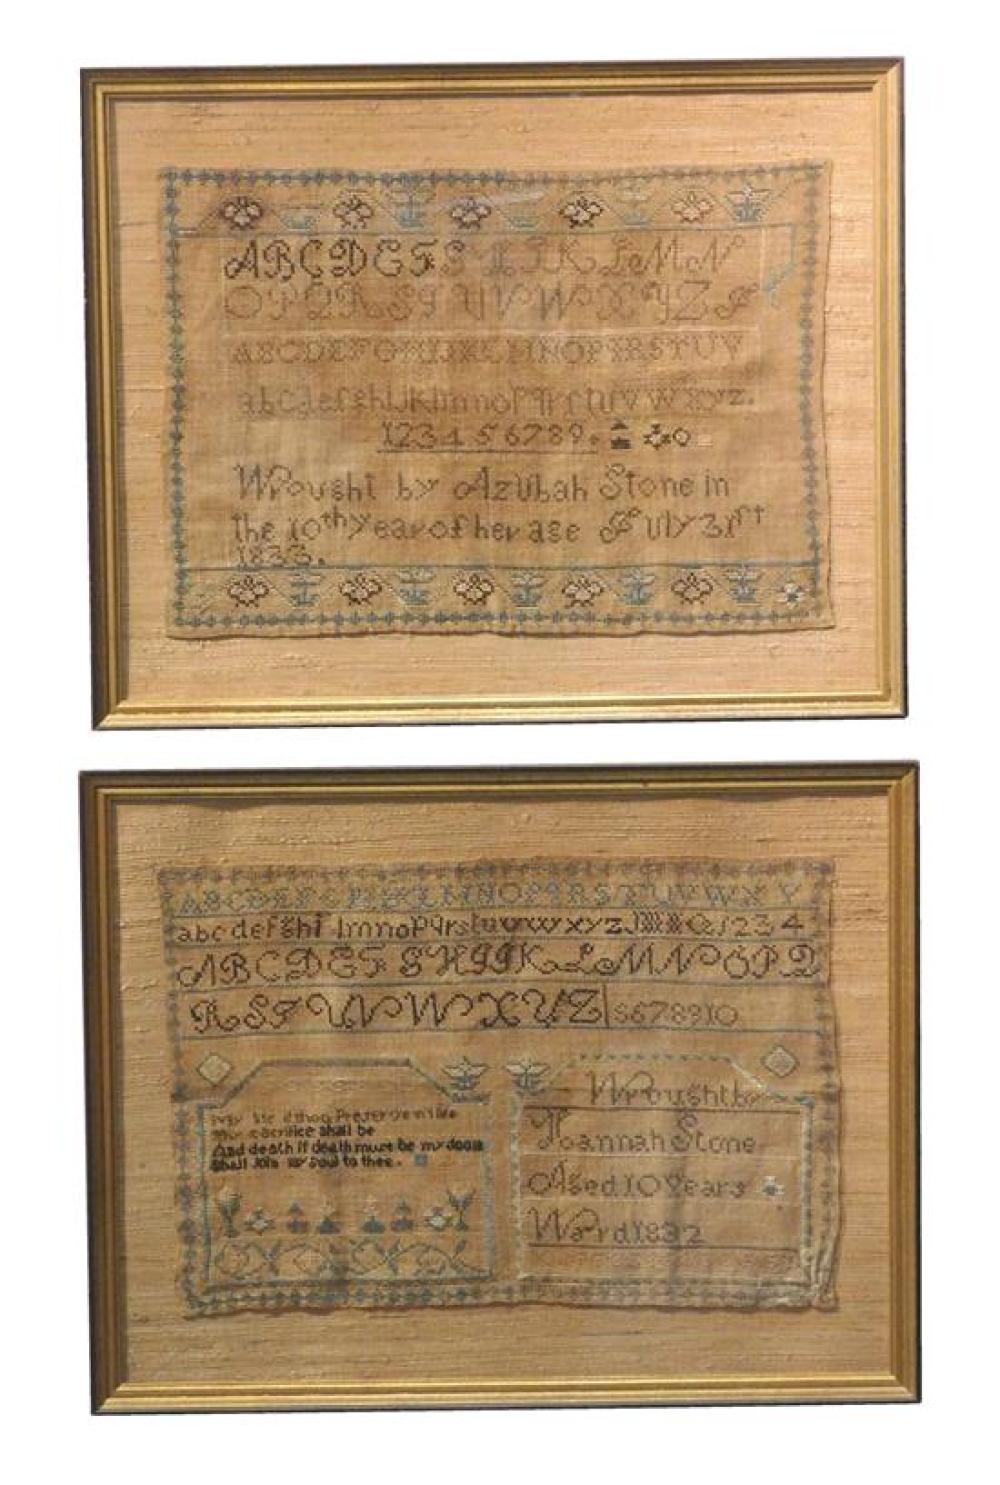 ABCDEFGHIKLMN
OPQRSTUVWXYZ &
ABCDEFGHIJKLMNOPQRSTUV
abcdefghijklmnopqrstuvwxyz.
123456789.
Wrought by Azubah Stone in
the 10th year of her age July 31st
1833.
ABCDEFGHIKLMNOPQRSTUVWXY
abcdefghilmnopqrstuvwxyz 1234
ABCDEFGHIJKLMNOPQ
RSTUVWXYZ 5678910
thou Preserve
sacrifice shall be
And death if death must be my doom
Shall join my soul to thee.
Wrought by
Hannah Stone
Aged 10 Years
Ward 1832